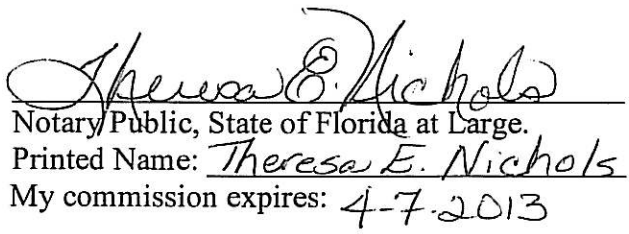 Theresa E. Nichols
Notary Public, State of Florida at Large.
Printed Name: Theresa E. Nichols
My commission expires: 4-7-2013